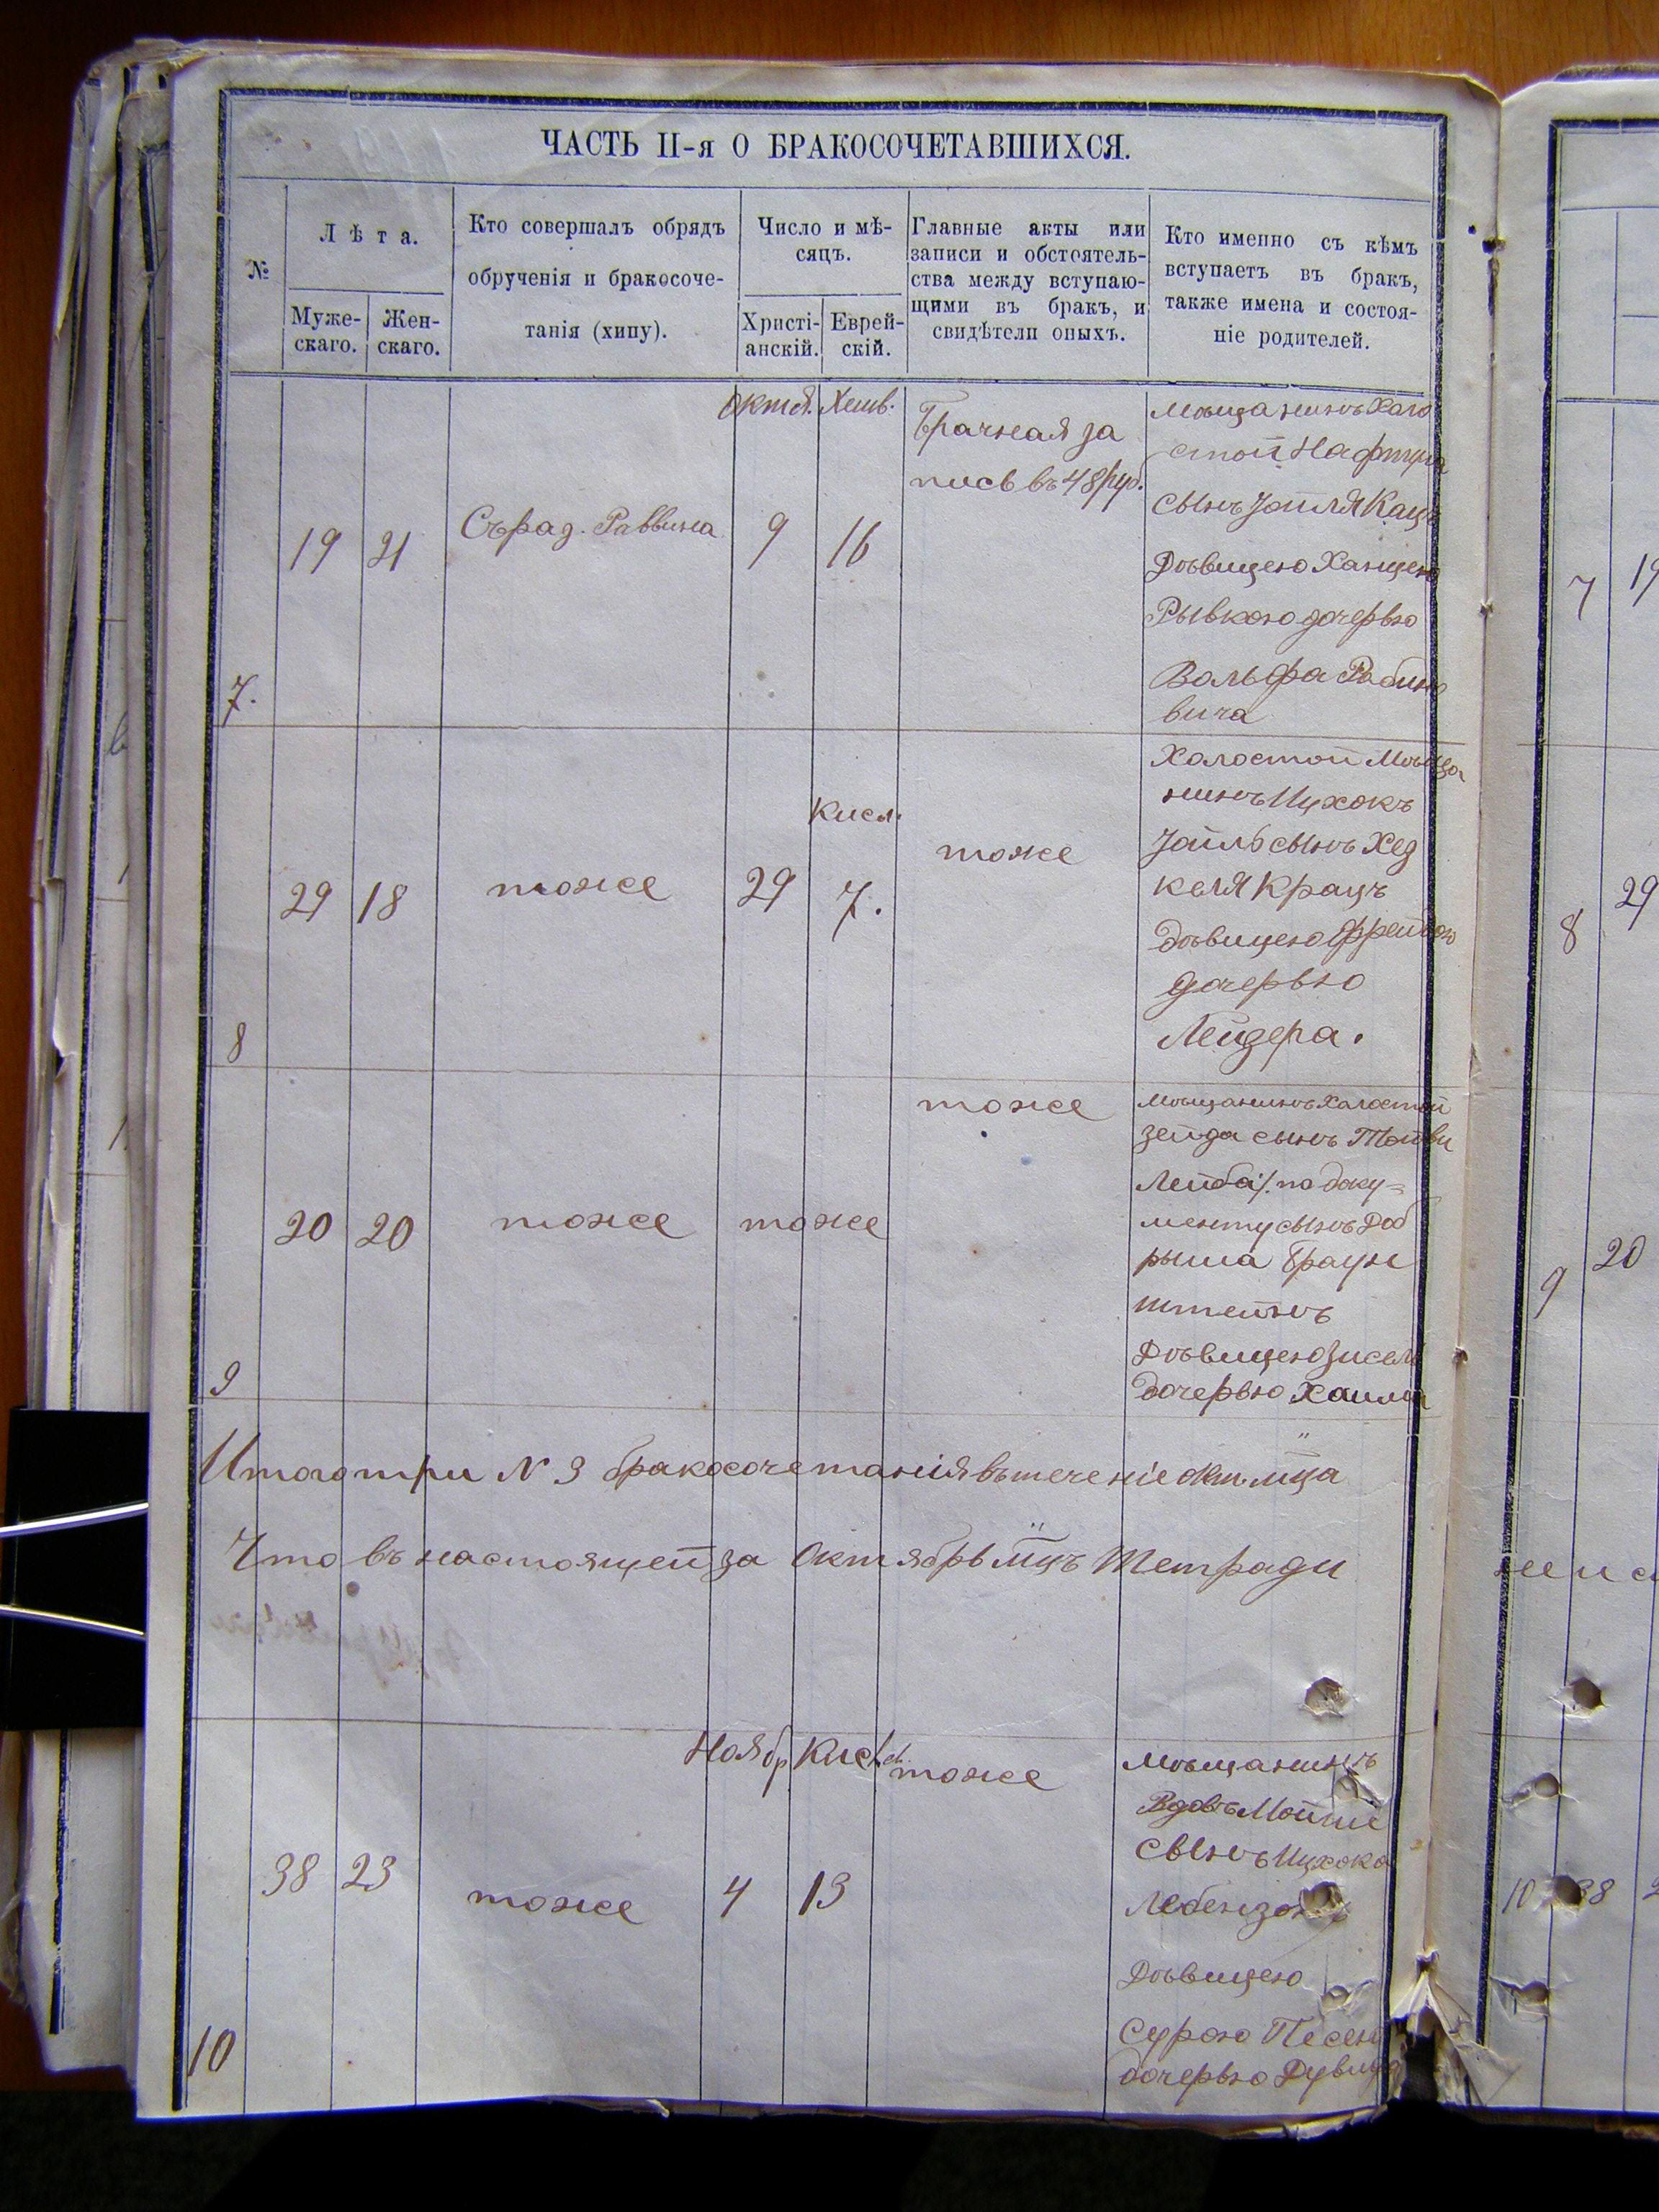 ЧАСТЬ II-я О БРАКОСОЧЕТАВШИХСЯ.
№
Лѣта.
Муже-
скаго.
Жен-
скаго.
Кто совершалъ обрядъ
обрученія и бракосоче-
танія (хипу).
Число и мѣ-
сяцъ.
Христі-
анскій.
Еврей-
скій.
Главные акты или
записи и обстоятель-
ства между вступаю-
щими въ бракъ, и
свидѣтели оныхъ.
Кто именно съ кѣмъ
вступаетъ въ бракъ,
также имена и состоя-
ніе родителей.
7.
19
21
Раввина
Октя. Хешв.
9
16
Брачная за
пись въ 48 руб.
Мѣщанинъ Холо
стой Нафтула
сынъ Іойля Кацъ
Дѣвицею Ханцею
Рывкою дочерью
Вольфа Рабино
вича
8
29
18
тоже
29
Кисл.
7.
тоже
Холостой Мѣща
нинъ Ицхокъ
Іойль сынъ Хец
келя Крацъ
дѣвицею Фрейдою
дочерью
Лейзера.
9
20
20
тоже
тоже
тоже
Мѣщанинъ Холостой
Зейда сынъ
Лейба /. по доку=
менту сынъ Доб
рыша Браун
штейнъ
Дѣвицею Зисель
дочерью Хаима
Итого три N 3 бракосочетанія въ теченіе Окт. мца
Что въ настоящей за Октябрь мцъ Тетради
10
38
23
тоже
Ноябр Кисл.
4
13
тоже
Мѣщанинъ
Вдовъ Мойше
сынъ Ицхока
Дѣвицею
Сурою Песею
дочерью
7
19
8
29
9
20
10
38